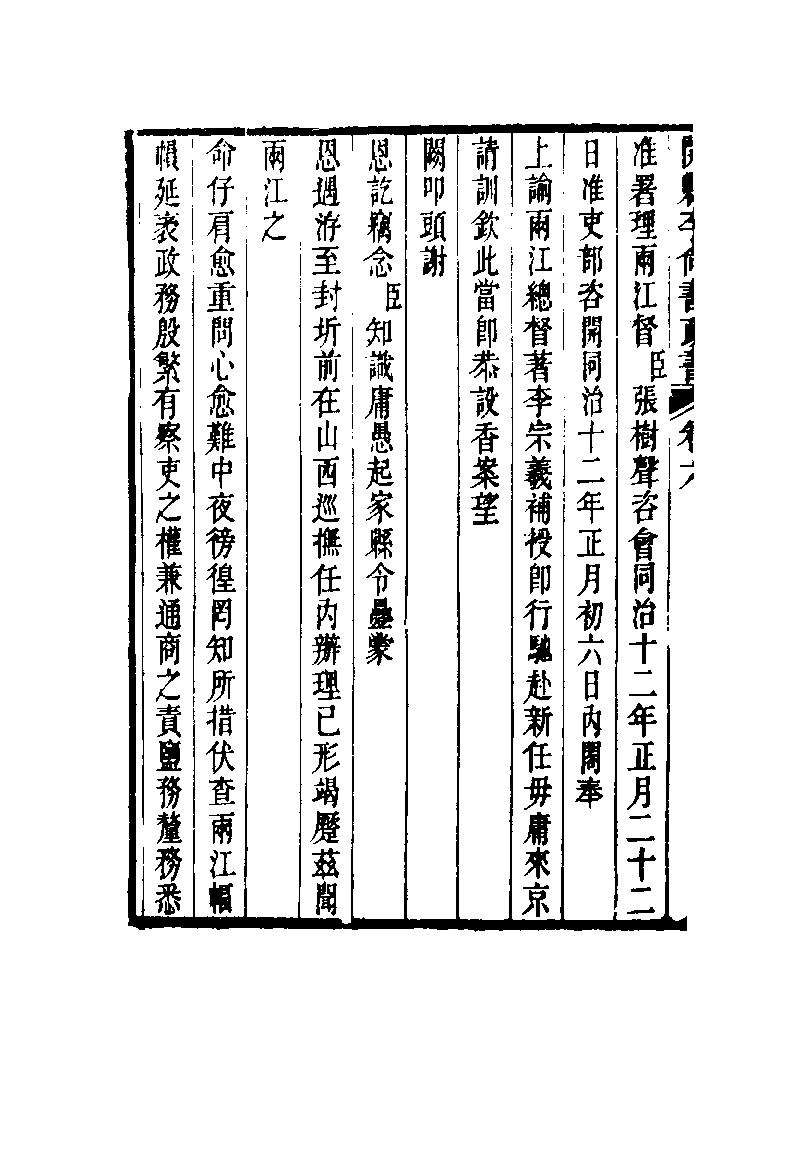 開縣李尚書政書 卷六
准署理兩江督臣張樹聲咨會同治十二年正月二十二
日准吏部咨開同治十二年正月初六日內閣奉
上諭兩江總督著李宗羲補授卽行馳赴新任毋庸來京
請訓欽此當卽恭設香案望
闕叩頭謝
恩訖竊念臣知識庸愚起家縣令曡蒙
恩遇洊至封圻前在山西巡撫任內辦理已形竭蹷茲聞
兩江之
命仔肩愈重問心愈難中夜徬徨罔知所措伏查兩江幅
幀延袤政務殷繁有察吏之權兼通商之責鹽務釐務悉